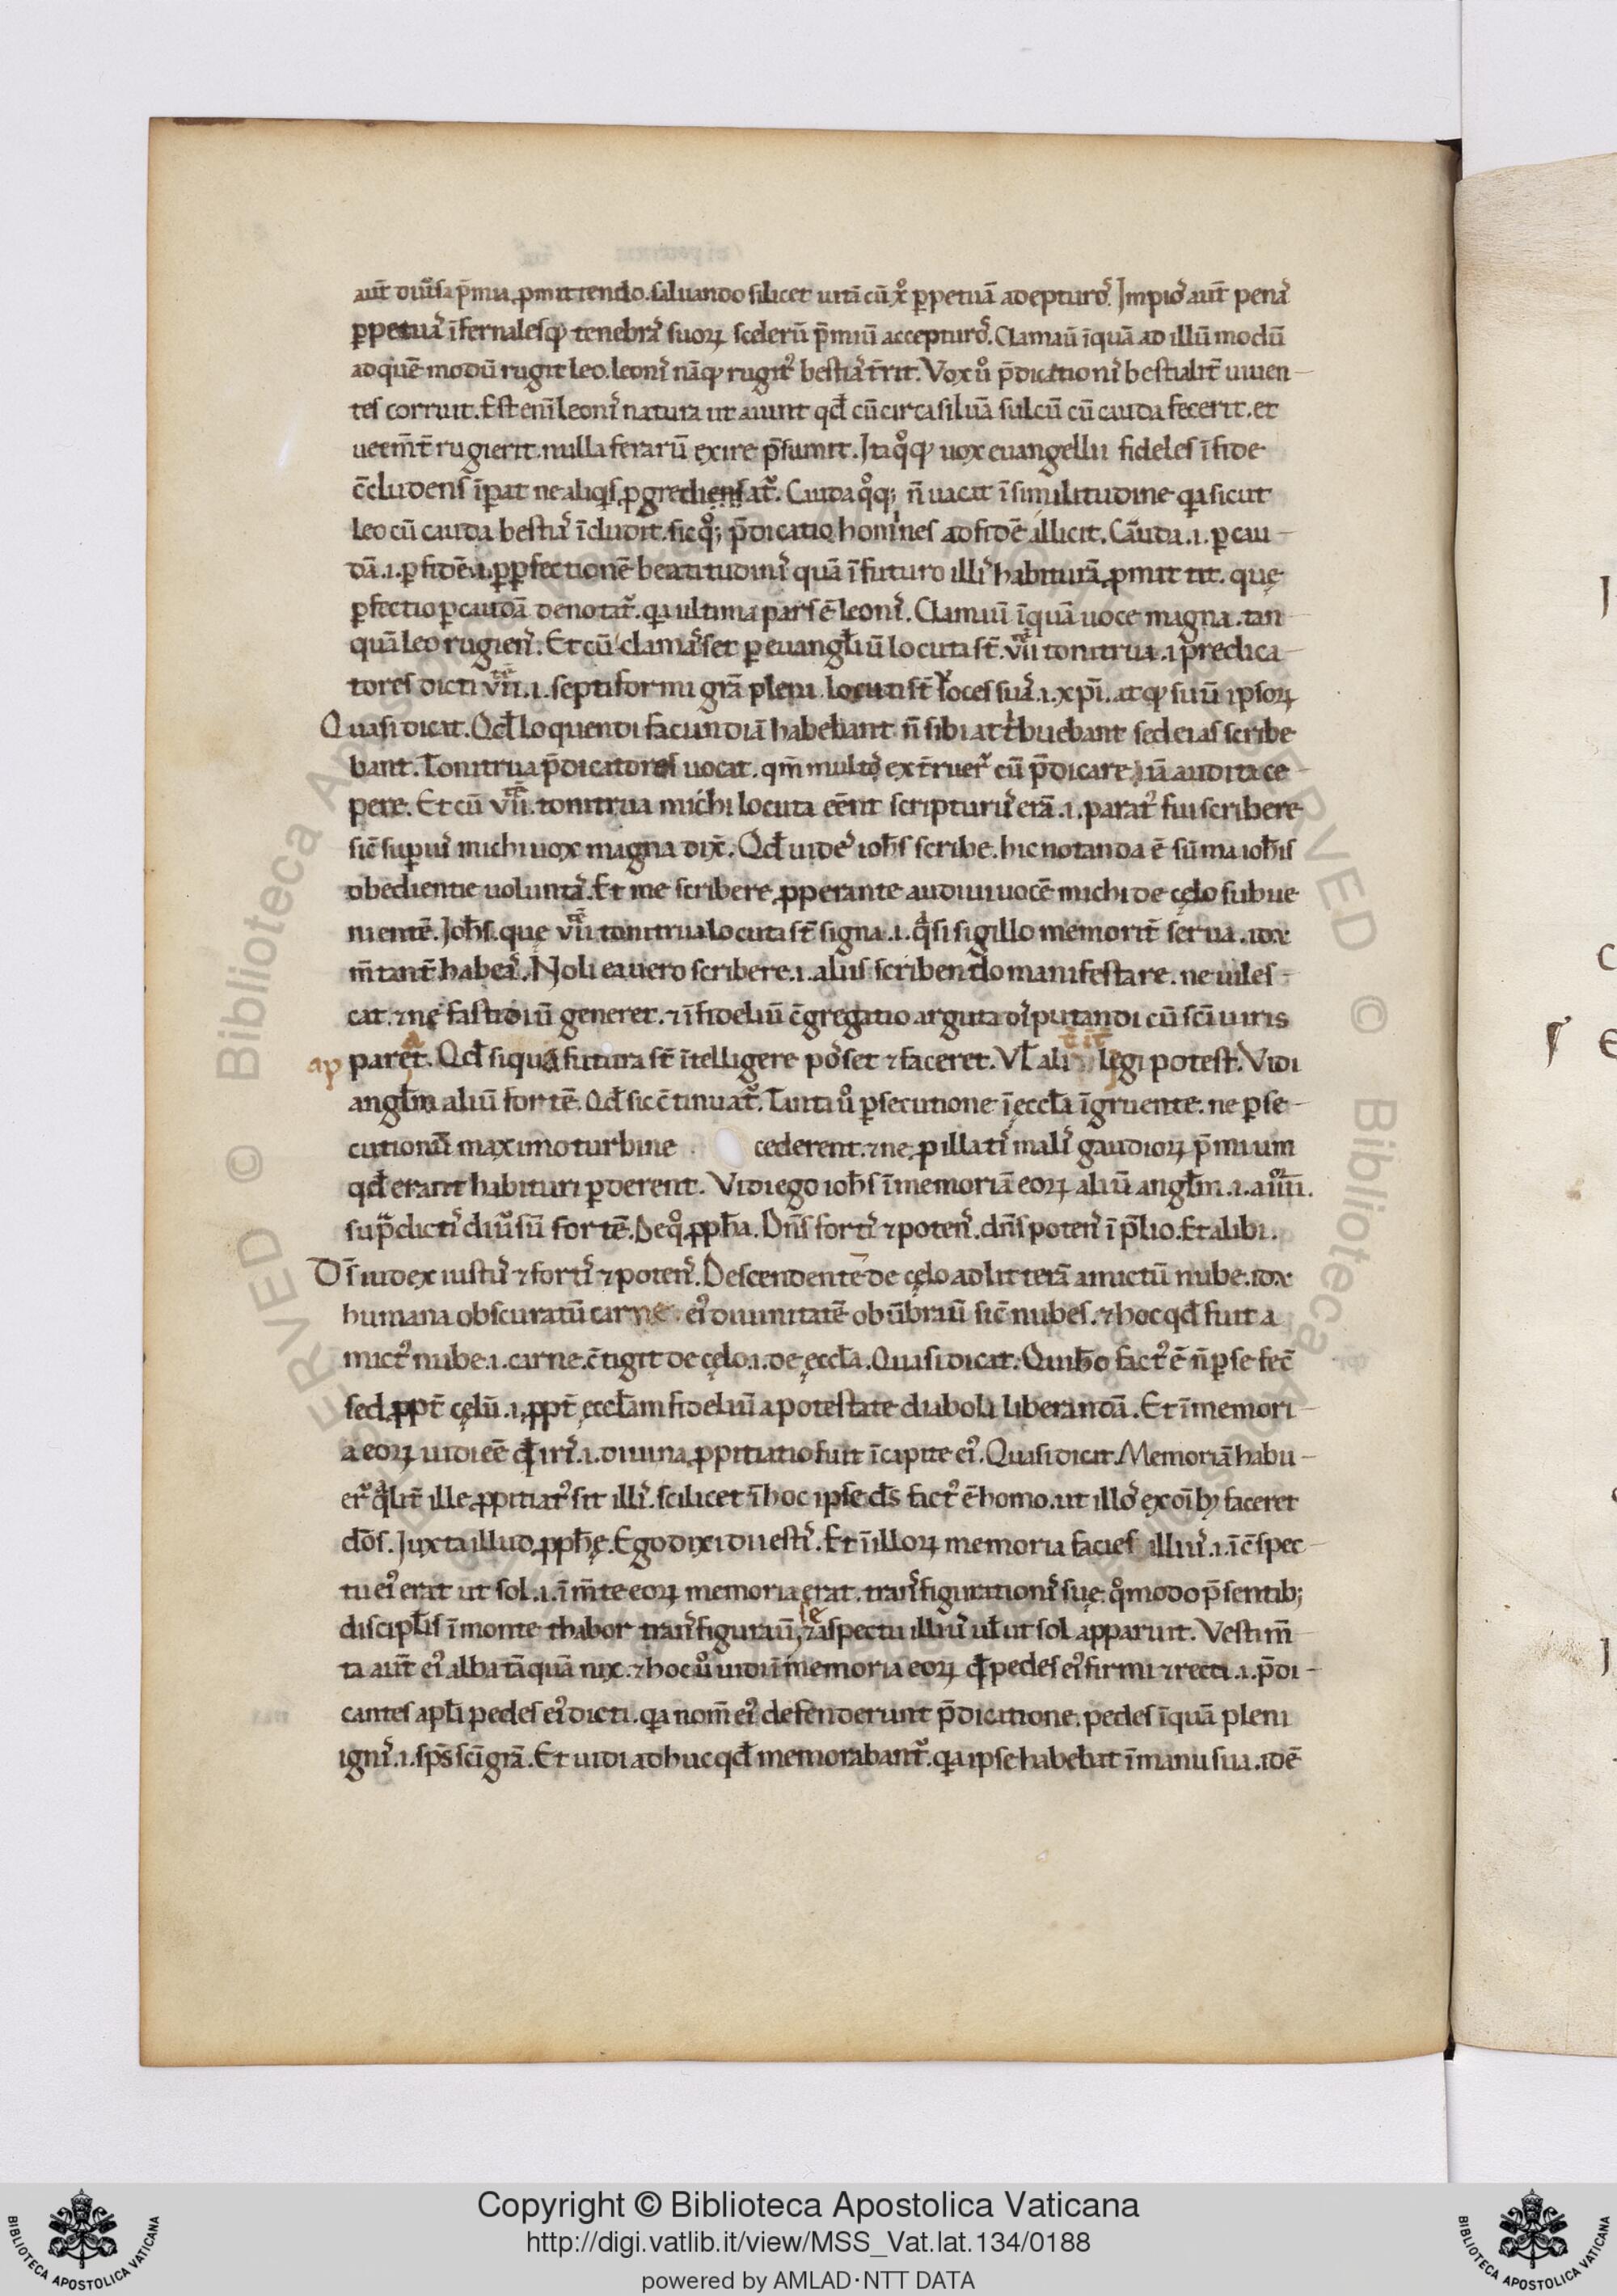 aut̄ diu̾sa p̄mia ꝓmittendo. saluando silicet uitā cū xo̾ ꝑpetuā adepturo᷒. Impio᷒ aut̄ pena᷒
ꝑpetua᷒ īfernalesqꝫ tenebra᷒ suoꝝ scelerū p̄miū accepturo᷒. Clamauī īquā ad illū modū
ad quē modū rugit leo. leoni᷒ nāqꝫ rugitꝰ bestia᷒ t̄rit. Vox u̾o p̄dicationi᷒ bestialit̄ uiuen-
tes corruit. Est eni᷒ leoni᷒ natura ut aiunt qđ cū circa siluā sulcū cū cauda fecerit. et
uem̄t̄ rugierit. nulla ferarū exire p̄sumit. Ita qo̾qꝫ uox euangelii fideles ī fide
c̄cludens īꝑat ne aliqis ꝓgrediensat᷑. Cauda qo̾qꝫ n̄ uacat ī similitudine qa sicut
leo cū cauda bestia᷒ īcludit. sic qo̾qꝫ p̄dicatio homines ad fidē illicit. Cauda .i. ꝑ cau-
dā .i. ꝑ fidē .i. ꝑ ꝑfectionē beatitudini᷒ quā ī futuro illi᷒ habiturā ꝓmittit. quę
ꝑfectio ꝑ caudā denotat᷑. qa ultima pars ē leoni᷒. Clamauī īquā uoce magna. tan-
quā leo rugien᷒. Et cū clama᷒set ꝑ euangl̄iū locuta st̄ .vii. tonitrua .i. predica-
tores dicti .vii. .i. septiformi grā pleni. locuti st̄ uoces sua᷒ .i. xpi. atqꝫ suū ipsoꝝ
Quasi dicat. Qđ loquendi facundiā habebant n̄ sibi attibuebant sed ei ascribe
bant. Tonitrua p̄dicatores uocat. qm̄ multo᷒ ext̄ruer᷑ cū p̄dicare iā audita ce-
pere. Et cū .vii. tonitrua michi locuta eēnt scripturu᷒ erā .i. paratꝰ fui scribere
sic̄ supui᷒ michi uox magna dix̄. Qđ uide᷒ ioh̄s scribe. hic notanda ē sūma ioh̄is
obedientie uolunta᷒. Et me scribere ꝓperante audiui uocē michi de cęlo subue
nientē. Ioh̄s. que .vii. tonitrua locuta st̄ signa .i. qasi sigillo memorit̄ serua. idē
m̄tant̄ habea᷒. Noli ea uero scribere .i. aliis scribendo manifestare. ne uiles-
cat. ⁊ ne fastidiū generet. ⁊ īfideliū c̄gregatio arguta di᷒putandi cū sc̄i uiris
ap paret. Qđ siqua futura st̄ ītelligere po᷒set ⁊ faceret. Vl̄ ali legi potest. Vidi
angl̄m aliū fortē. Qđ sic c̄tinuat᷑. Tanta u̾o ꝑsecutione ī eccl̄a īgruente. ne ꝑse-
cutionū maximo turbine cederent. ⁊ ne ꝓ illati᷒ mali᷒ gaudioꝝ p̄mium
qđ erant habituri ꝑderent. Vidi ego ioh̄s ī memoriā eoꝝ aliū angl̄m .i. a .iiii.
sup̄dicti᷒ diu̾sū fortē. De qo̾ ꝓph̄a. Dn̄s forti᷒ ⁊ poten᷒. dn̄s poten᷒ ī p̄lio. Et alibi.
Ds̄ iudex iustu᷒ ⁊ forti᷒ ⁊ poten᷒. Descendentē de cęlo ad litterā amictū nube. idē
humana obscuratū carne. eiꝰ diuinitatē obūbrauī sic̄ nubes. ⁊ hoc qđ fuit a
mictꝰ nube .i. carne. c̄tigit de cęlo .i. de eccl̄a. Quasi dicat. Quib̄ o factꝰ ē n̄ ꝑ se fec̄
sed ꝓpt̄ cęlū .i. ꝓpt̄ eccl̄am fideliū a potestate diaboli liberandā. Et ī memori-
a eoꝝ uidi eē qđ iri᷒ .i. diuina ꝓpitiatio fuit ī capite eiꝰ. Quasi dicat. Memoriā habu-
er᷑ qalit̄ ille ꝓpitiatꝰ sit illi᷒. scilicet ī hoc ipse ds̄ factꝰ ē homo. ut illo᷒ ex oīb; faceret
dōs. Iuxta illud ꝓph̄ę. Ego dixi dii esti᷒. Et ī illoꝝ memoria facies illiu᷒ .i. ī c̄spec-
tu eiꝰ erat ut sol .i. ī m̄te eoꝝ memoria erat. tran᷒figurationi᷒ suę. qo̾modo p̄sentib;
discipl̄is ī monte thabor tran᷒figurauī se ⁊ aspectu illiu᷒ ul̄ ut sol apparuit. Vestim̄-
ta aut̄ eiꝰ alba tāquā nix. ⁊ hoc u̾o uidi ī memoria eoꝝ qđ pedes eiꝰ firmi ⁊ recti .i. p̄di-
cantes apl̄i pedes eiꝰ dicti. qa nom̄ eiꝰ defenderunt p̄dicatione. pedes īquā pleni
igni᷒ .i. sps̄ sc̄i grā. Et uidi adhuc qđ memorabant᷑. qa ipse habebat ī manu sua. idē
Copyright © Biblioteca Apostolica Vaticana
http://digi.vatlib.it/view/MSS_Vat.lat.134/0188
powered by AMLAD·NTT DATA